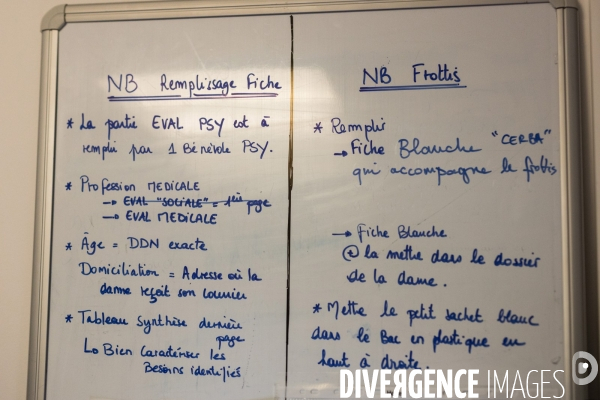 NB Remplissage Fiche
* La partie EVAL PSY est à
remplir par 1 Bénévole PSY.
* Profession MEDICALE
→ EVAL "SOCIALE" = 1ère page
→ EVAL MEDICALE
* Âge = DDN exacte
Domiciliation = Adresse où la
dame reçoit son courrier
* Tableau synthèse dernière
page
↳ Bien Caractériser les
Besoins identifiés
NB Frottis
* Remplir
→ Fiche Blanche "CERBA"
qui accompagne le frottis
→ Fiche Blanche
@ la mettre dans le dossier
de la dame.
* Mettre le petit sachet blanc
dans le Bac en plastique en
haut à droite.
DIVERGENCE IMAGES